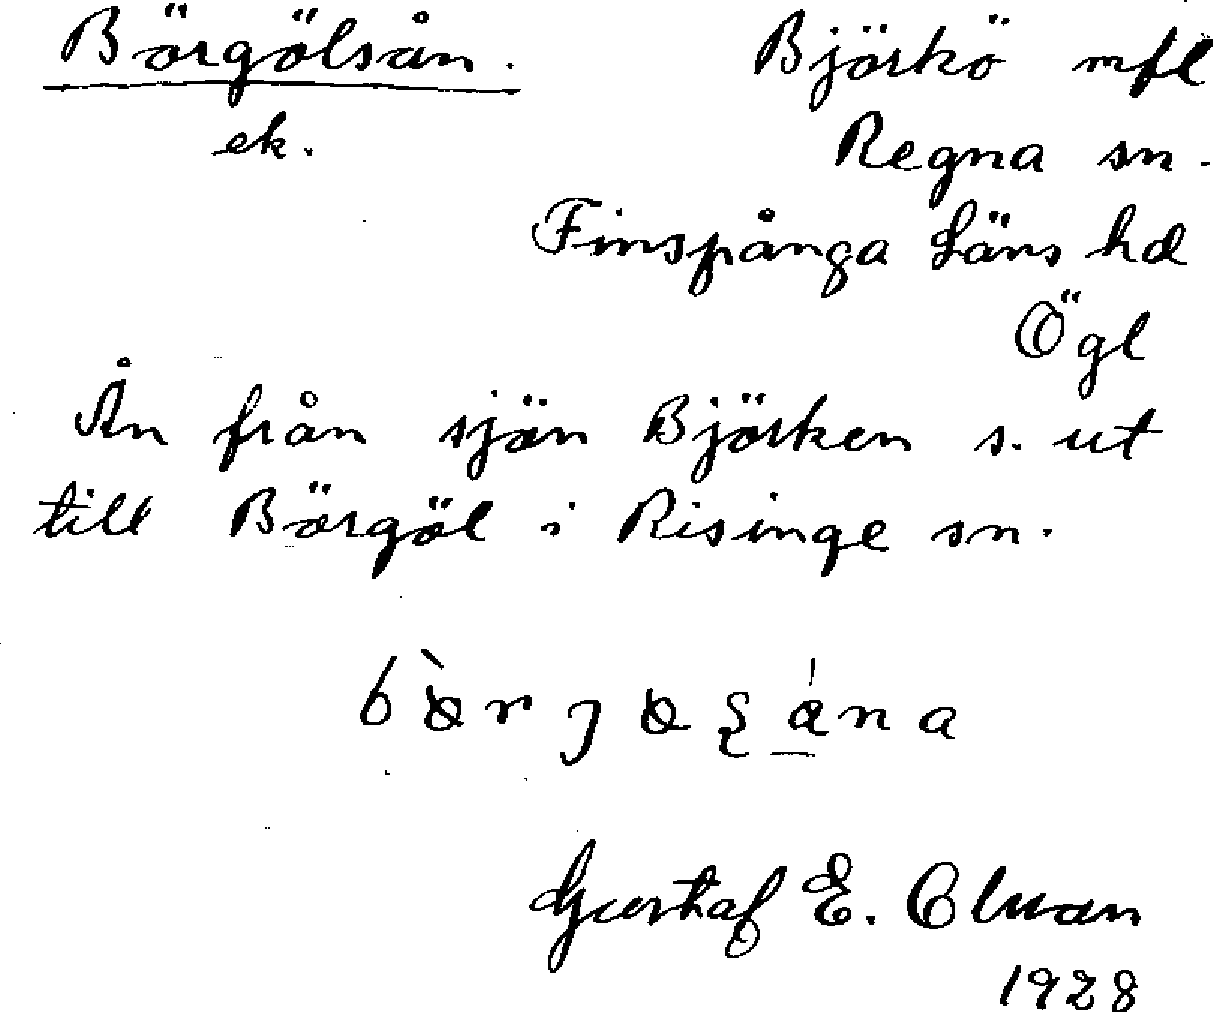 Börgölsån.
ek.
Björkö mfl
Regna sn.
Finspånga Läns hd
Ögl
Ån från sjön Björken s. ut
till Börgöl i Risinge sn.
Gustaf E.
1928